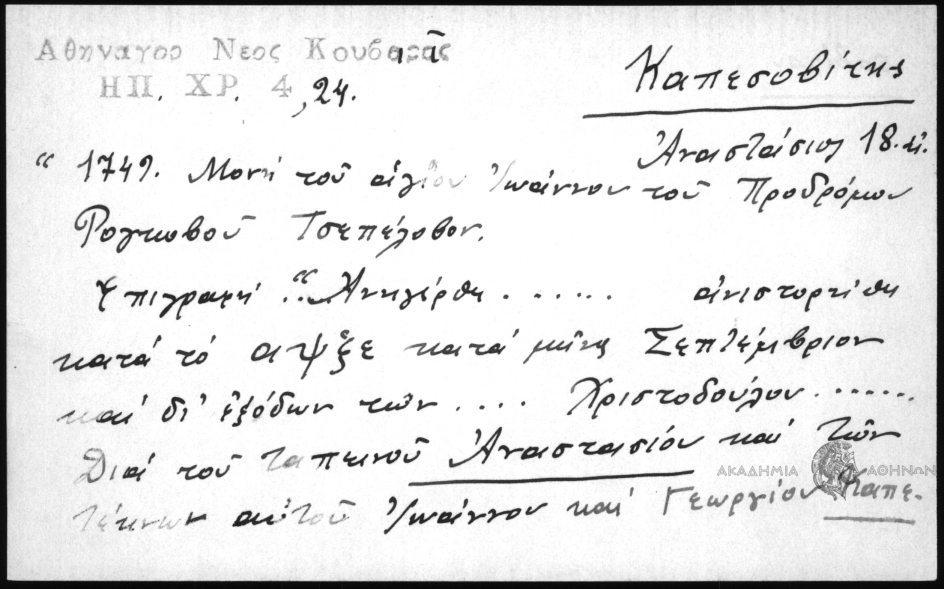 Αθηναγορ Νεος Κουβαρᾶς
ΗΠ. ΧΡ. 4, 24.
Καπεσοβίτης
Ἀναστάσιος 18. αἰ.
“ 1749. Μονή τοῦ ἁγίου Ἰωάννου τοῦ Προδρόμου
Ρογκοβοῦ Τσεπέλοβον.
Ἐπιγραφή : “Ἀνηγέρθη ...... ἀνιστορήθη
κατά τό αψξε κατά μῆνα Σεπτέμβριον
καί δι' ἐξόδων τῶν .... Χριστοδούλου ......
Διά τοῦ ταπεινοῦ Ἀναστασίου καί τῶν
τέκνων αὐτοῦ Ἰωάννου καί Γεωργίου Καπε-
ΑΚΑΔΗΜΙΑ ΑΘΗΝΩΝ